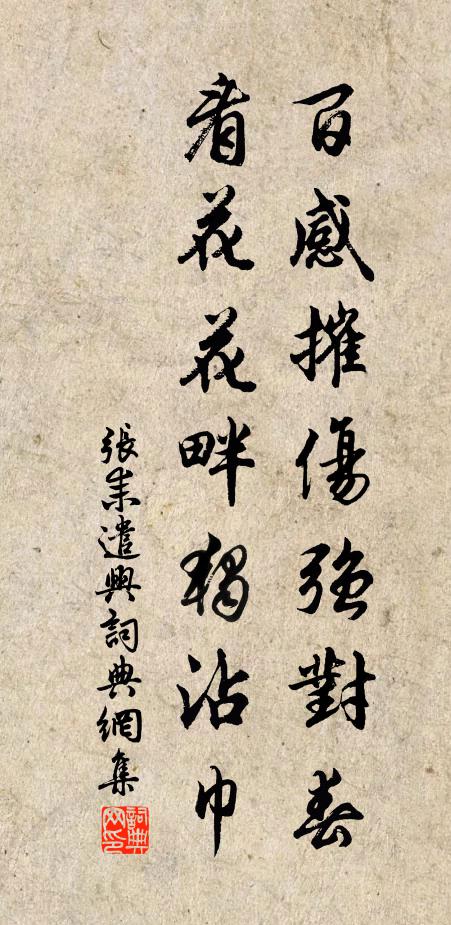 百感摧傷強對春
看花花畔獨沾巾
張耒遣興詞典網集
詞典網印